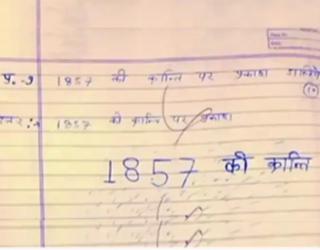 प्र.-9 1857 की क्रान्ति पर प्रकाश डालिये
(10)
उत्तर:- 1857 की क्रान्ति पर प्रकाश
1857 की क्रान्ति